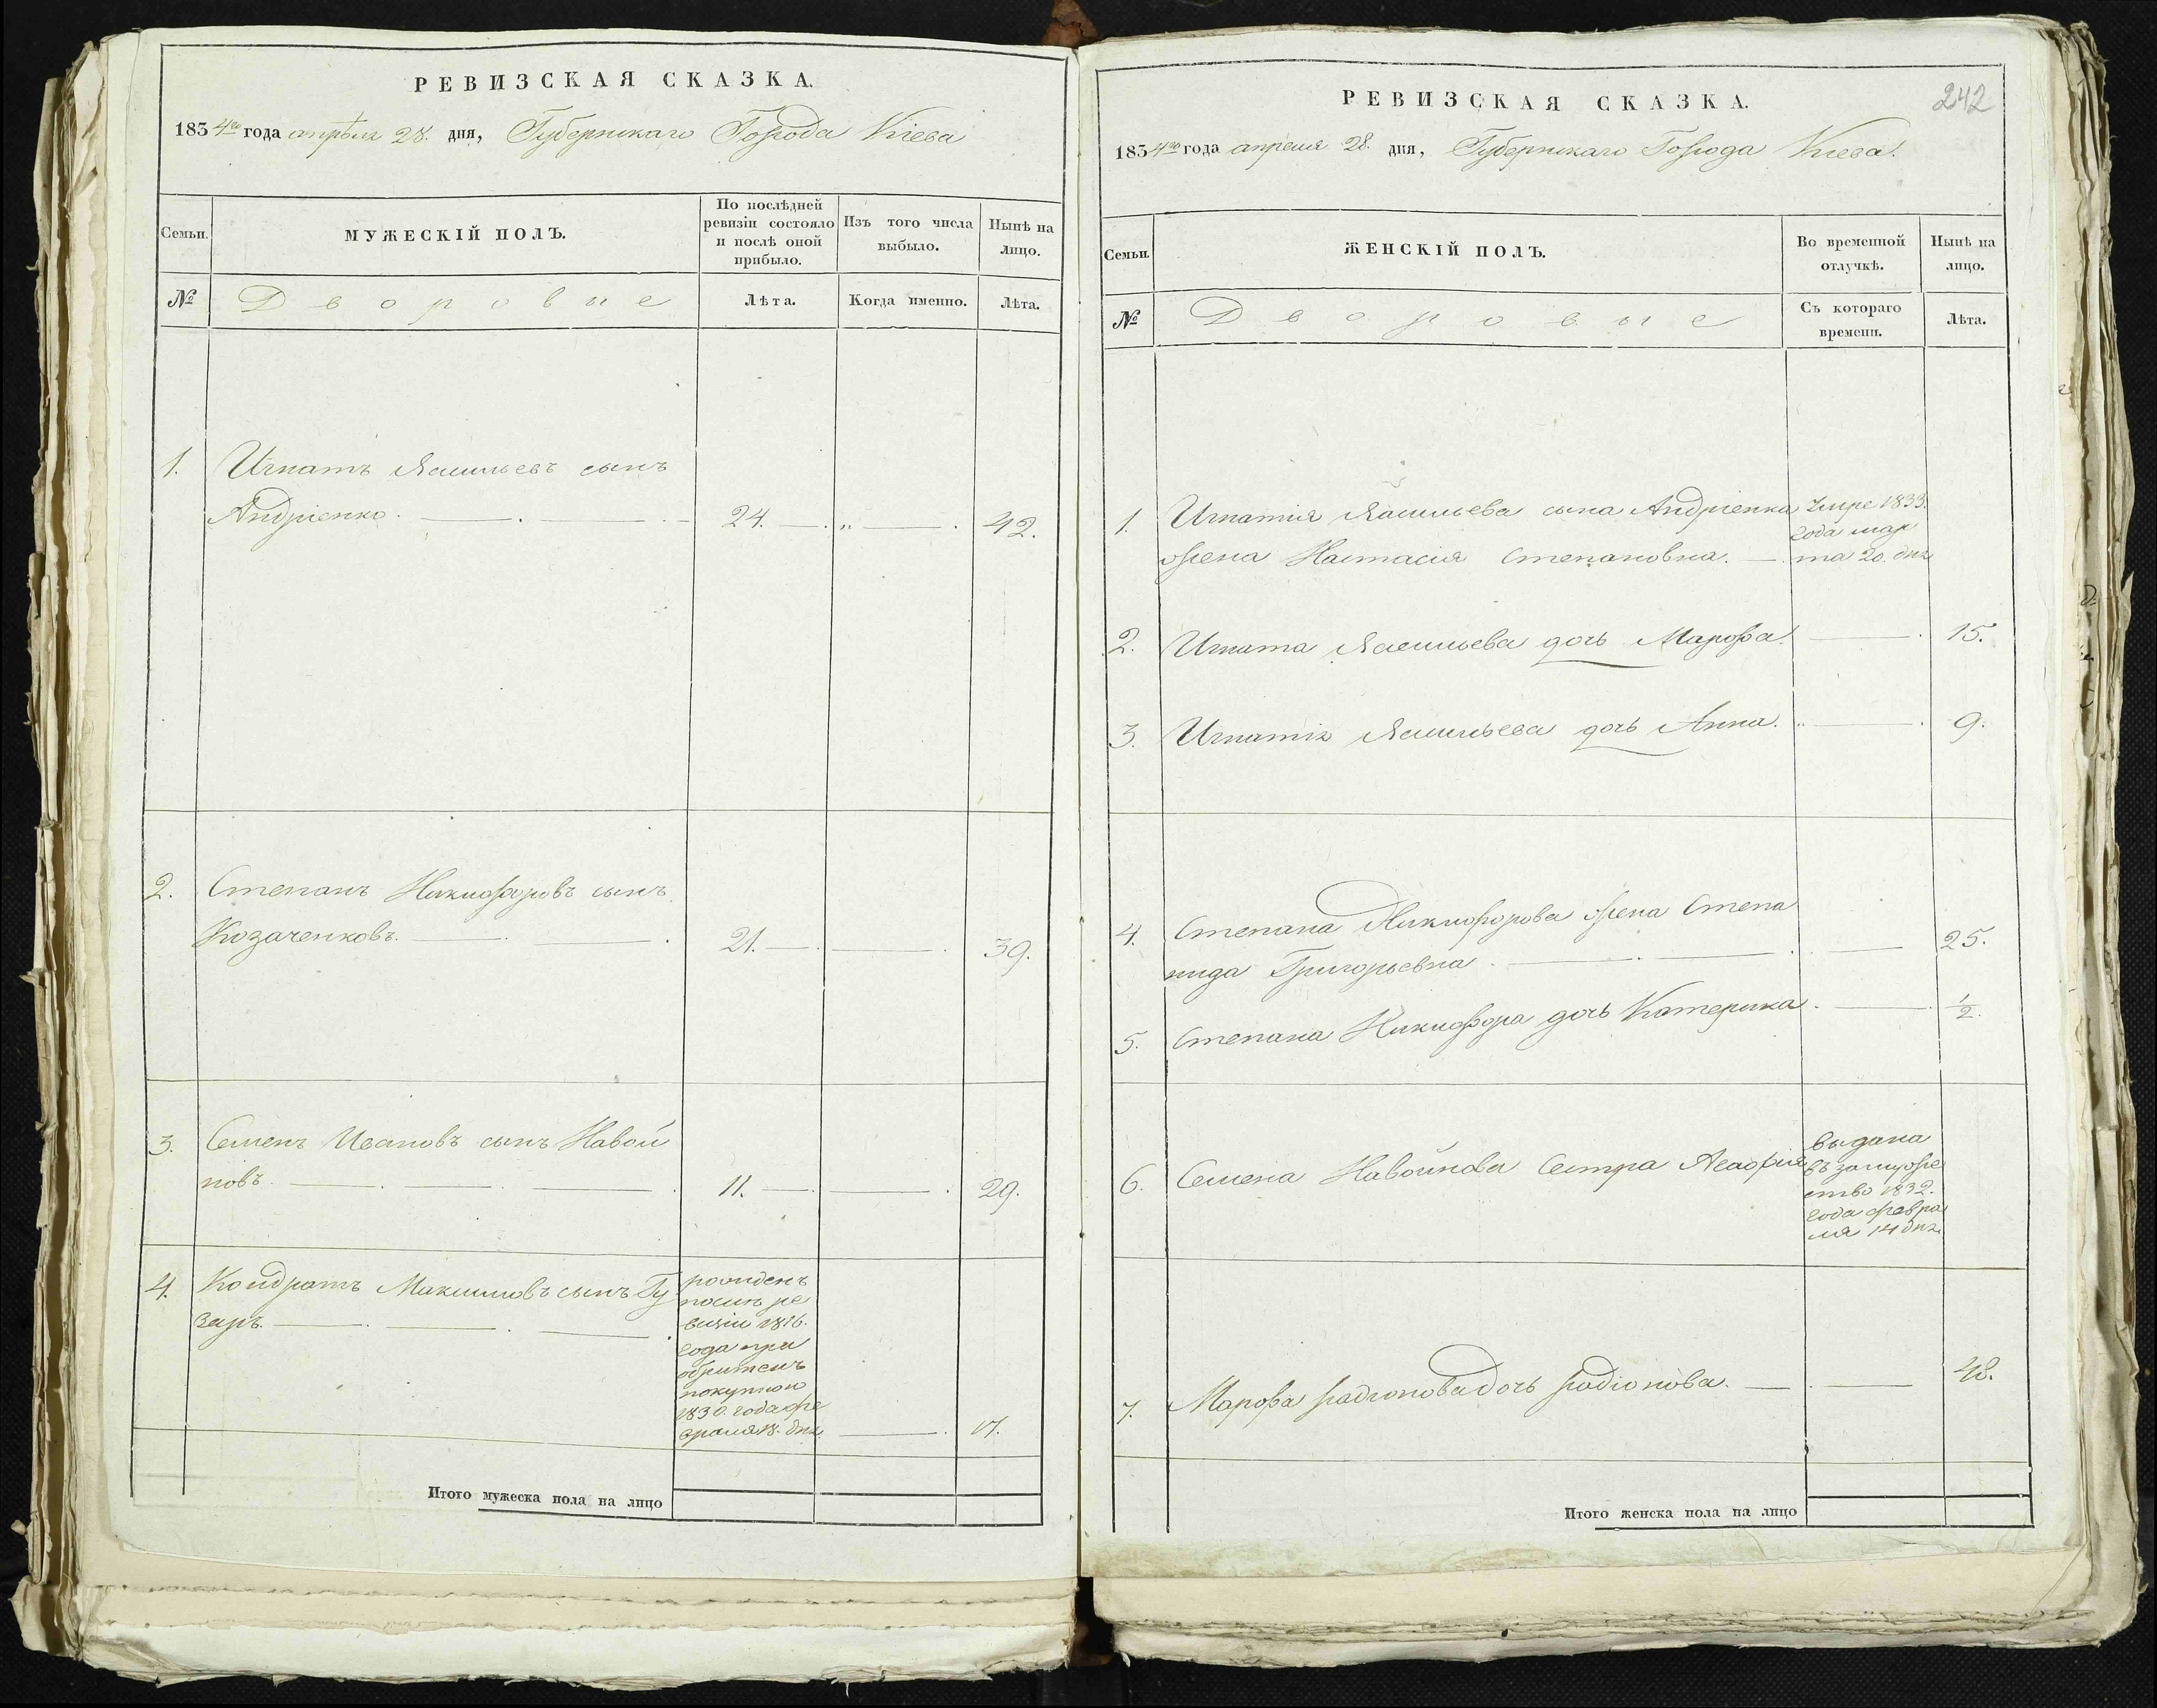 РЕВИЗСКАЯ СКАЗКА.
1834го года апрѣля 28. дня, Губернскаго Города Кіева
Семьи.
МУЖЕСКІЙ ПОЛЪ.
По послѣдней
ревизіи состояло
и послѣ оной
прибыло.
Изъ того числа
выбыло.
Нынѣ на
лицо.
№
Дворовые
Лѣта.
Когда именно.
Лѣта.
1. Игнатъ Васильевъ сынъ
Андріенко. 24. „ 42.
2. Степанъ Никифоровъ сынъ
Козаченковъ. 21. 39.
3. Семенъ Ивановъ сынъ Навой
новъ. 11. 29.
4. Кондратъ Максимовъ сынъ Гу
заръ.
рожденъ
послѣ ре
визіи 1816.
года прі
обритенъ
покупкою
1830. года фе
враля 18. дня. 17.
Итого мужеска пола на лицо
РЕВИЗСКАЯ СКАЗКА.
242
1834го года апреля 28. дня, Губернскаго Города Кіева.
Семьи.
ЖЕНСКІЙ ПОЛЪ.
Во временной
отлучкѣ.
Нынѣ на
лицо.
№
Дворовые
Съ котораго
времени.
Лѣта.
1. Игнатія Васильева сына Андріенка
жена Настасія Степановна.
Умре 1833.
года мар
та 20. дня
2. Игната Васильева дочь Марфа 15.
3. Игнатія Васильева дочь Анна. „ 9.
4. Степана Никифорова жена Степа
нида Григорьевна. 25.
5. Степана Никифора дочь Катерина. 1/2.
6. Семена Навойнова Сестра Агафія
выдана
въ замуже
ство 1832.
года февра
ля 14 дня
7. Марфа радіонова дочь радіонова. 48.
Итого женска пола на лицо